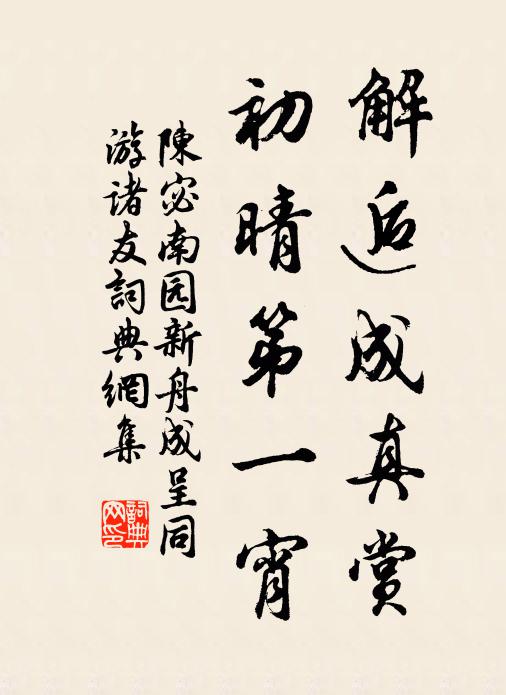 解逅成真赏
初晴第一宵
陳宓南园新舟成呈同
游诸友詞典網集
詞典
网印